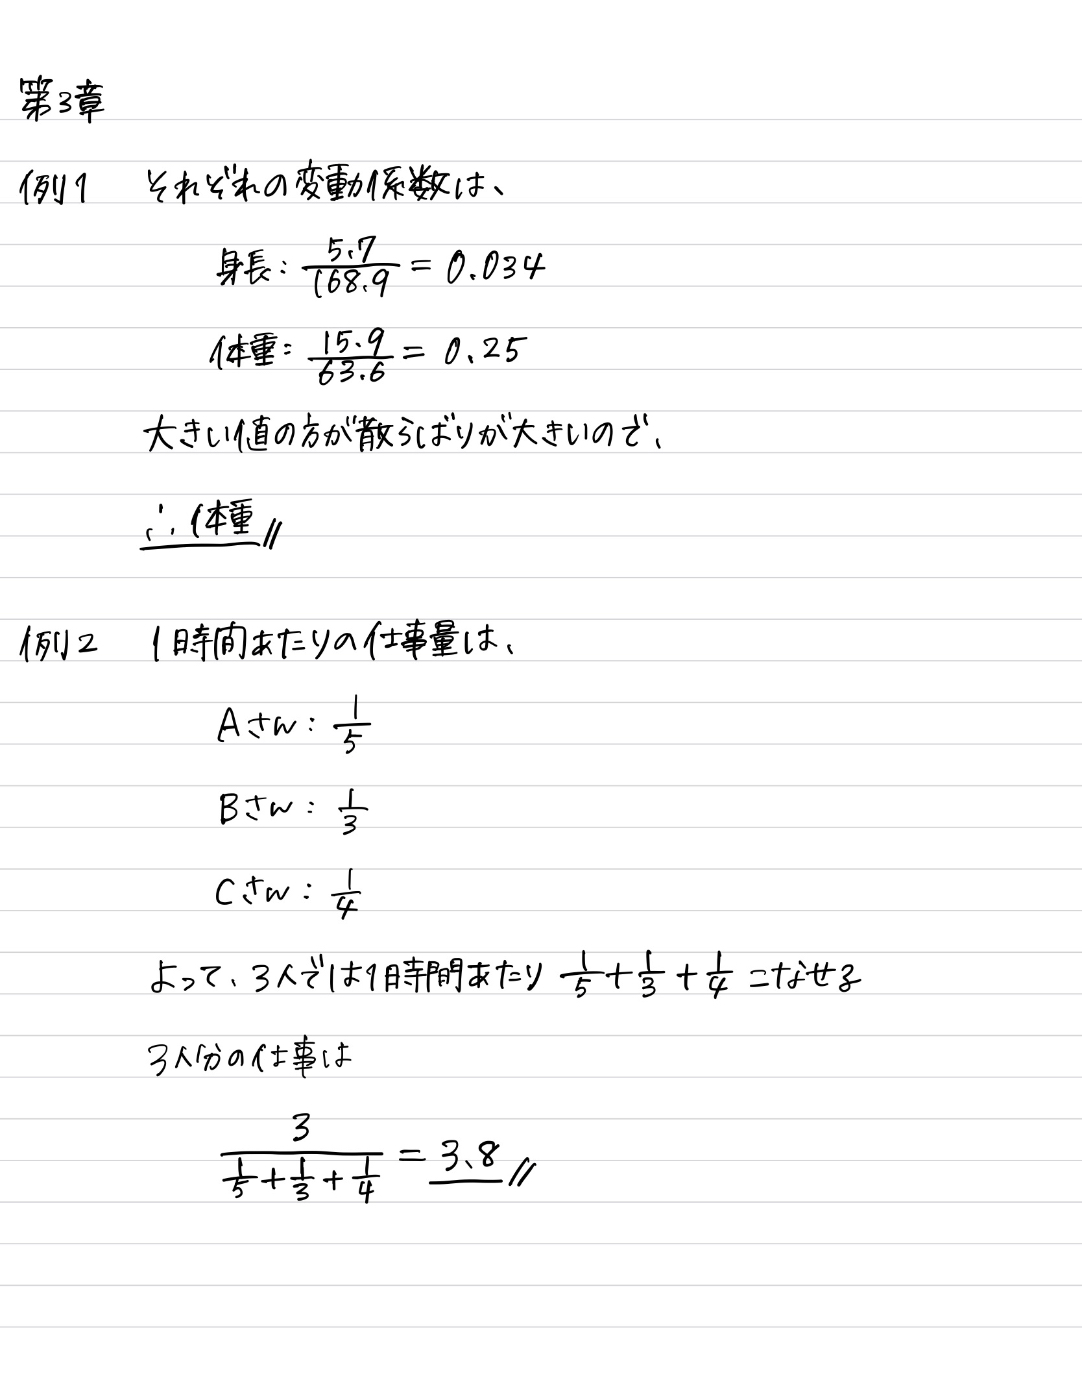 第3章
例1 それぞれの変動係数は、
身長: 5.7/168.9 = 0.034
体重: 15.9/63.6 = 0.25
大きい値の方が散らばりが大きいので、
∴体重//
例2 1時間あたりの仕事量は、
Aさん: 1/5
Bさん: 1/3
Cさん: 1/4
よって、3人では1時間あたり 1/5 + 1/3 + 1/4 こなせる
3人分の仕事は
3/(1/5 + 1/3 + 1/4) = 3.8//